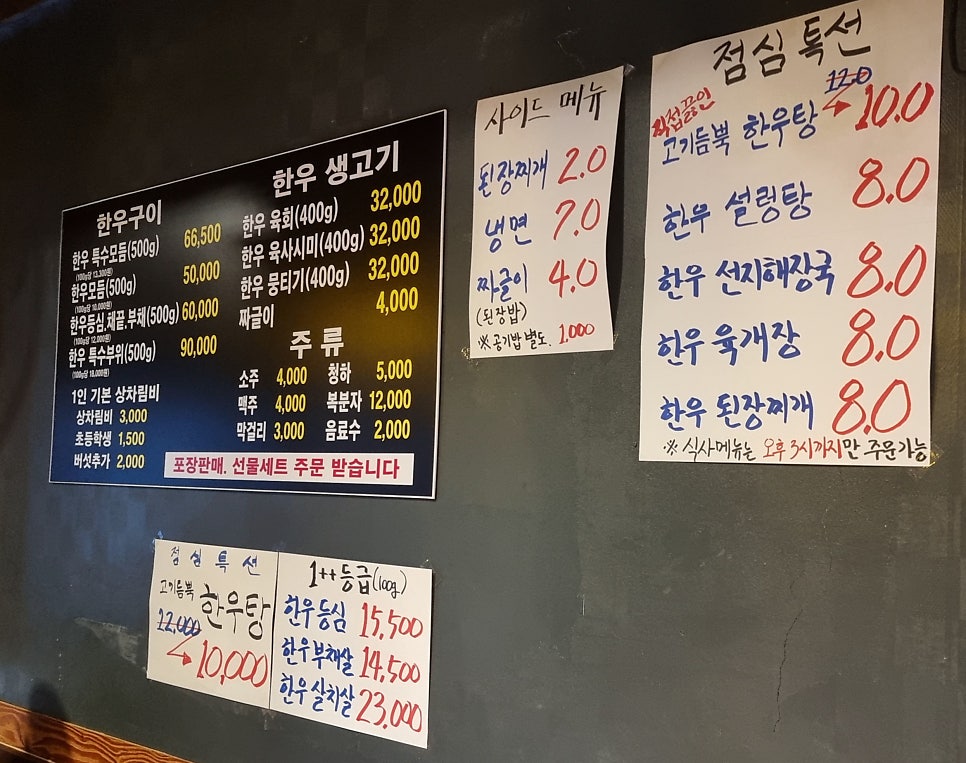 한우구이
한우 특수모듬(500g) 66,500
(100g당 13,300원)
한우모듬(500g) 50,000
(100g당 10,000원)
한우등심.채끝.부채(500g) 60,000
(100g당 12,000원)
한우 특수부위(500g) 90,000
(100g당 18,000원)
1인 기본 상차림비
상차림비 3,000
초등학생 1,500
버섯추가 2,000
한우 생고기
한우 육회(400g) 32,000
한우 육사시미(400g) 32,000
한우 뭉티기(400g) 32,000
짜글이 4,000
주류
소주 4,000 청하 5,000
맥주 4,000 복분자 12,000
막걸리 3,000 음료수 2,000
포장판매. 선물세트 주문 받습니다
사이드 메뉴
된장찌개 2.0
냉면 7.0
짜글이 4.0
(된장밥)
※ 공기밥 별도. 1.000
점심 특선
직접끓인 12.0
고기듬뿍 한우탕 → 10.0
한우 설렁탕 8.0
한우 선지해장국 8.0
한우 육개장 8.0
한우 된장찌개 8.0
※ 식사메뉴는 오후 3시까지만 주문가능
점심특선
고기듬뿍 한우탕
12,000
→ 10,000
1++등급(100g.)
한우등심 15,500
한우부채살 14,500
한우살치살 23,000